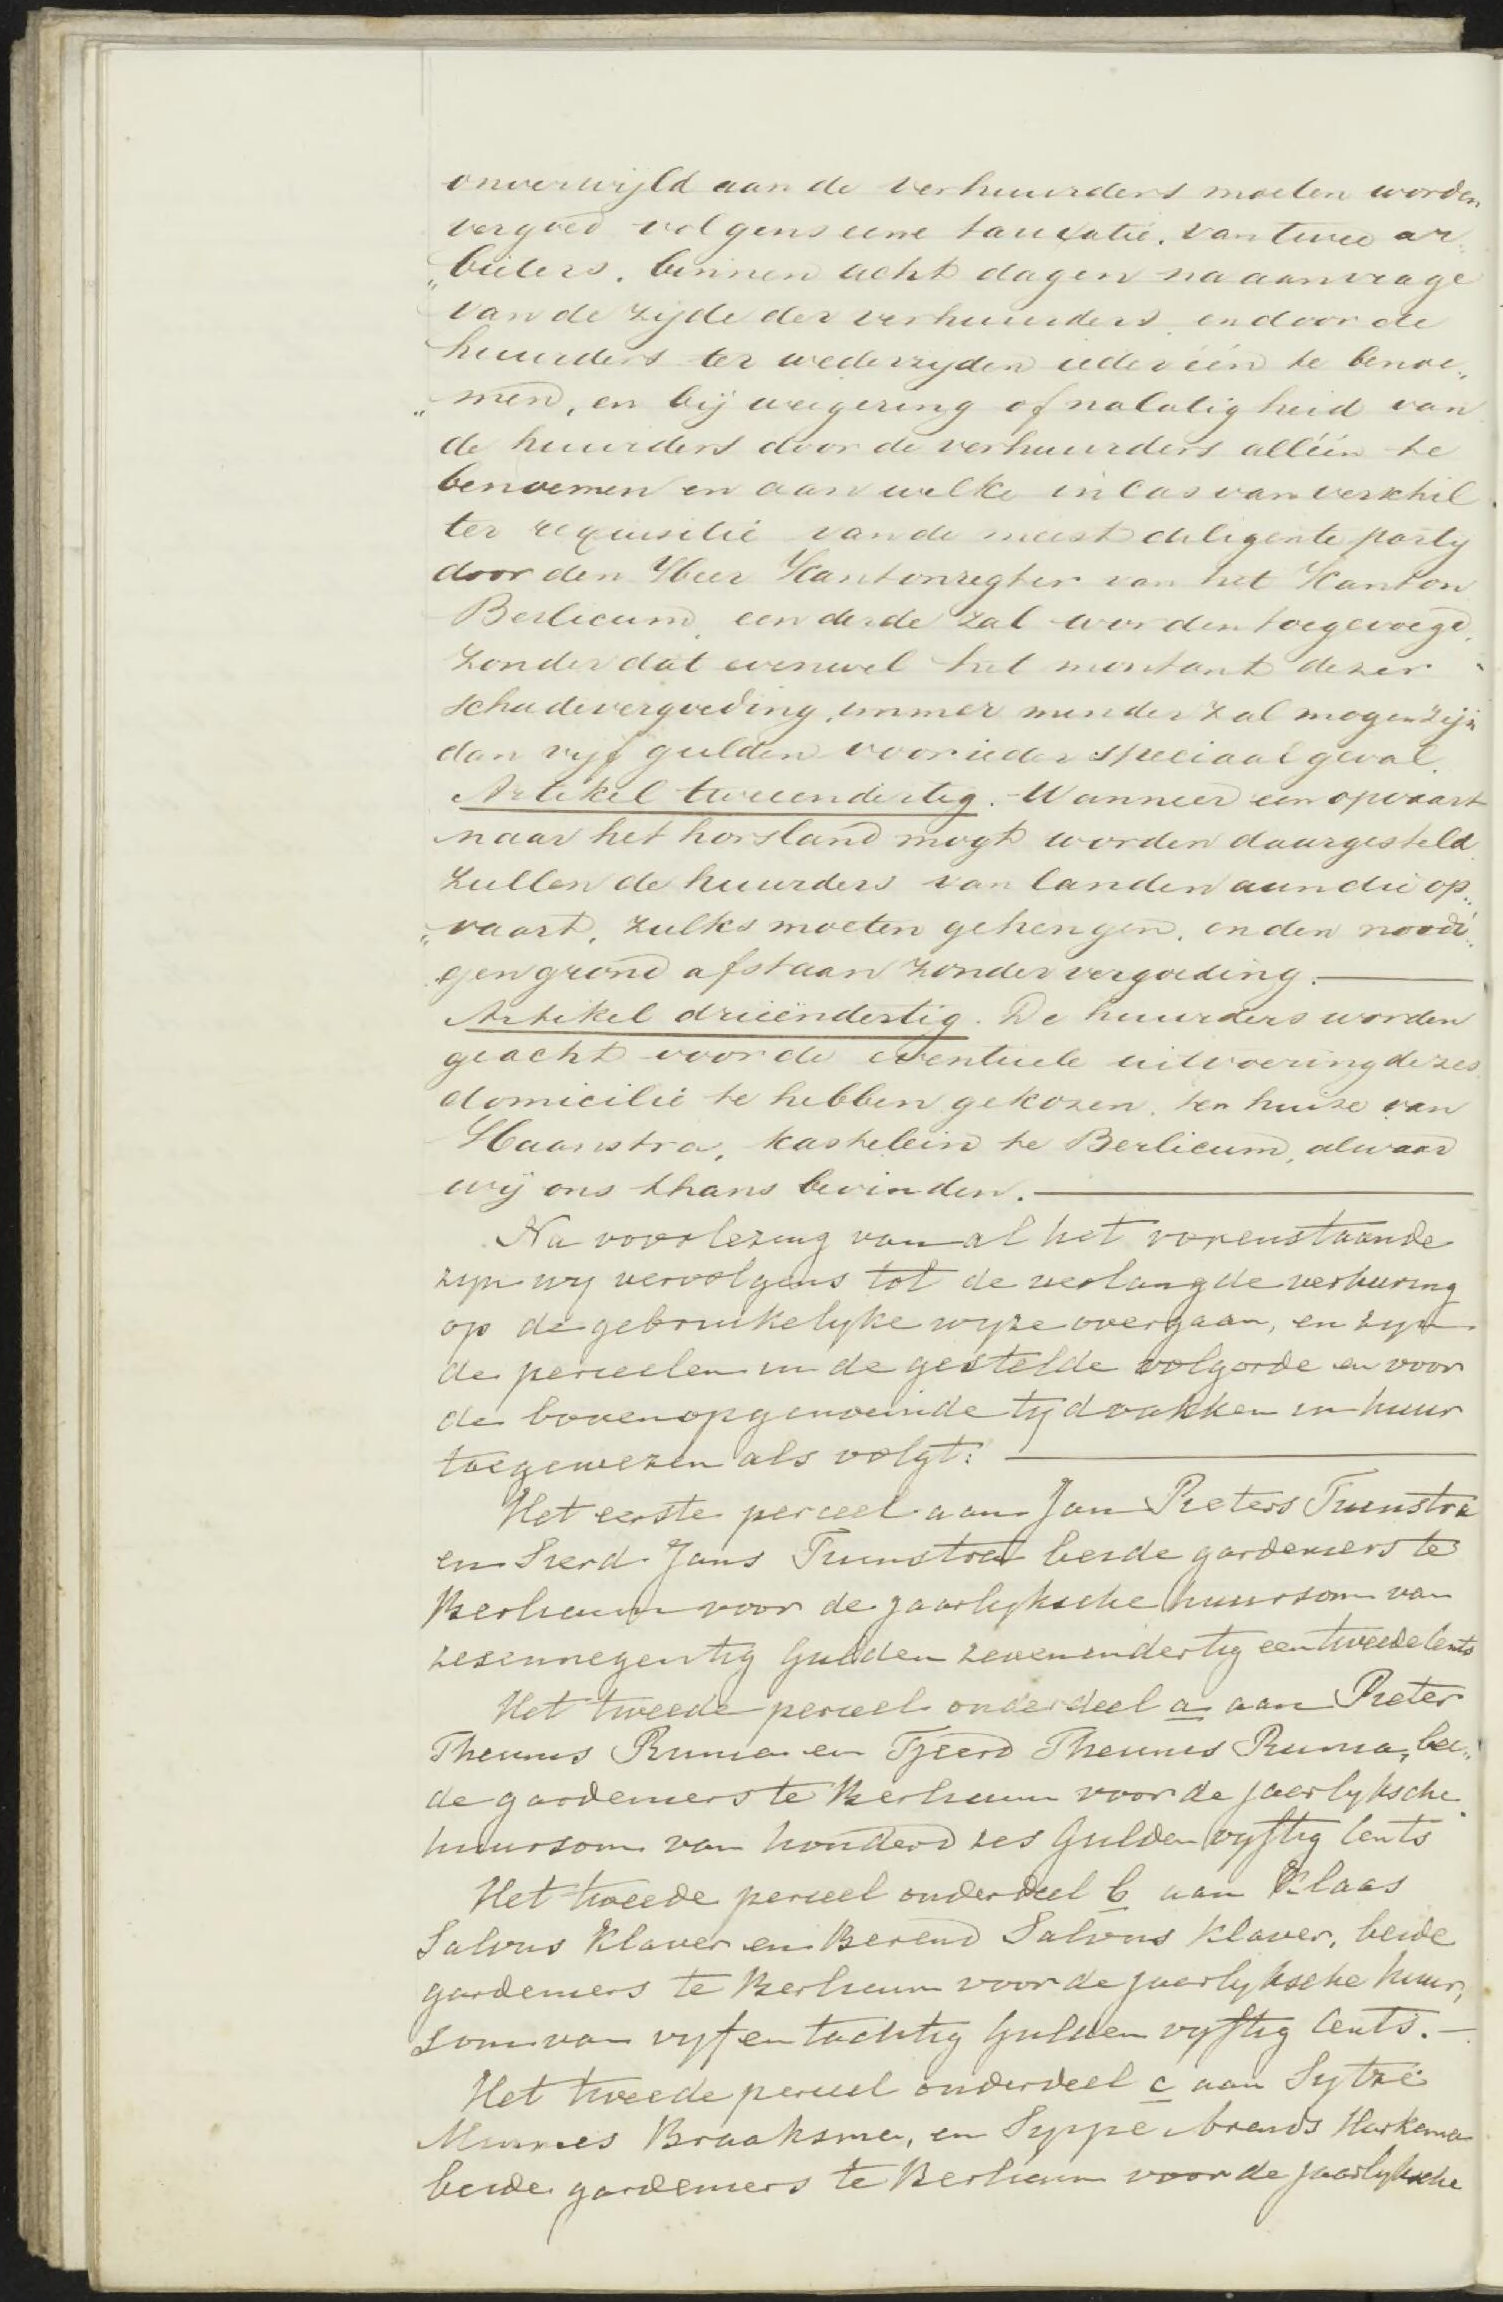 onverwijld aan de verhuurders moeten worden
vergoed volgens eene taxatie. van twee ar„
„beiders. binnen acht dagen na aanvrage
van de zijde der verhuurders en door de
huurders ter wederzyden ieder één te benoe„
„men, en bij weigering of nalatigheid van
de huurders door de verhuurders alléén te
benoemen en aan welke in cas van verschil
ter requisitie van de meest diligente party
door den Heer Kantonregter van het Kanton
Berlicum, een derde zal worden toegevoegd,
zonder dat evenwel het montant dezer
schadevergoeding, immer minder zal mogen zijn
dan vyf gulden voor ieder speciaal geval.
Artikel tweeendertig. Wanneer een opvaart
naar het horsland mogt worden daargesteld
zullen de huurders van landen aan die op„
„vaart, zulks moeten gehengen, en den noodi„
gen grond afstaan zonder vergoeding.
Artikel drieëndertig. De huurders worden
geacht voor de eventuele uitvoering dezes
domicilie te hebben gekozen, ten huize van
Haanstra, kastelein te Berlicum, alwaar
wij ons thans bevinden.
Na voorlezing van al het vorenstaande
zyn wy vervolgens tot de verlangde verhuring
op de gebruikelyke wyze overgaan, en zyn
de perceelen in de gestelde volgorde en voor
de bovenopgenoemde tydvakken in huur
toegewezen als volgt:
Het eerste perceel aan Jan Pieters Tuinstra
en Sierd Jans Tuinstra beide gardeniers te
Berlicum voor de jaarlyksche huursom van
zesennegentig Gulden zevenendertig een tweede Cents
Het tweede perceel onderdeel a aan Pieter
Theunis Ruma en Tjeerd Theunis Ruma, bei„
de gardeniers te Berlicum voor de jaarlyksche
huursom van honderd zes Gulden vyftig Cents
Het tweede perceel onderdeel b aan Klaas
Salvus Klaver en Berend Salvus Klaver, beide
gardeniers te Berlicum voor de jaarlyksche huur,
som van vyf en tachtig Gulden vyftig Cents.
Het tweede perceel onderdeel c aan Sytze
Minnes Braaksma, en Syppe Arends Harkema
beide gardeniers te Berlicum voor de jaarlyksche